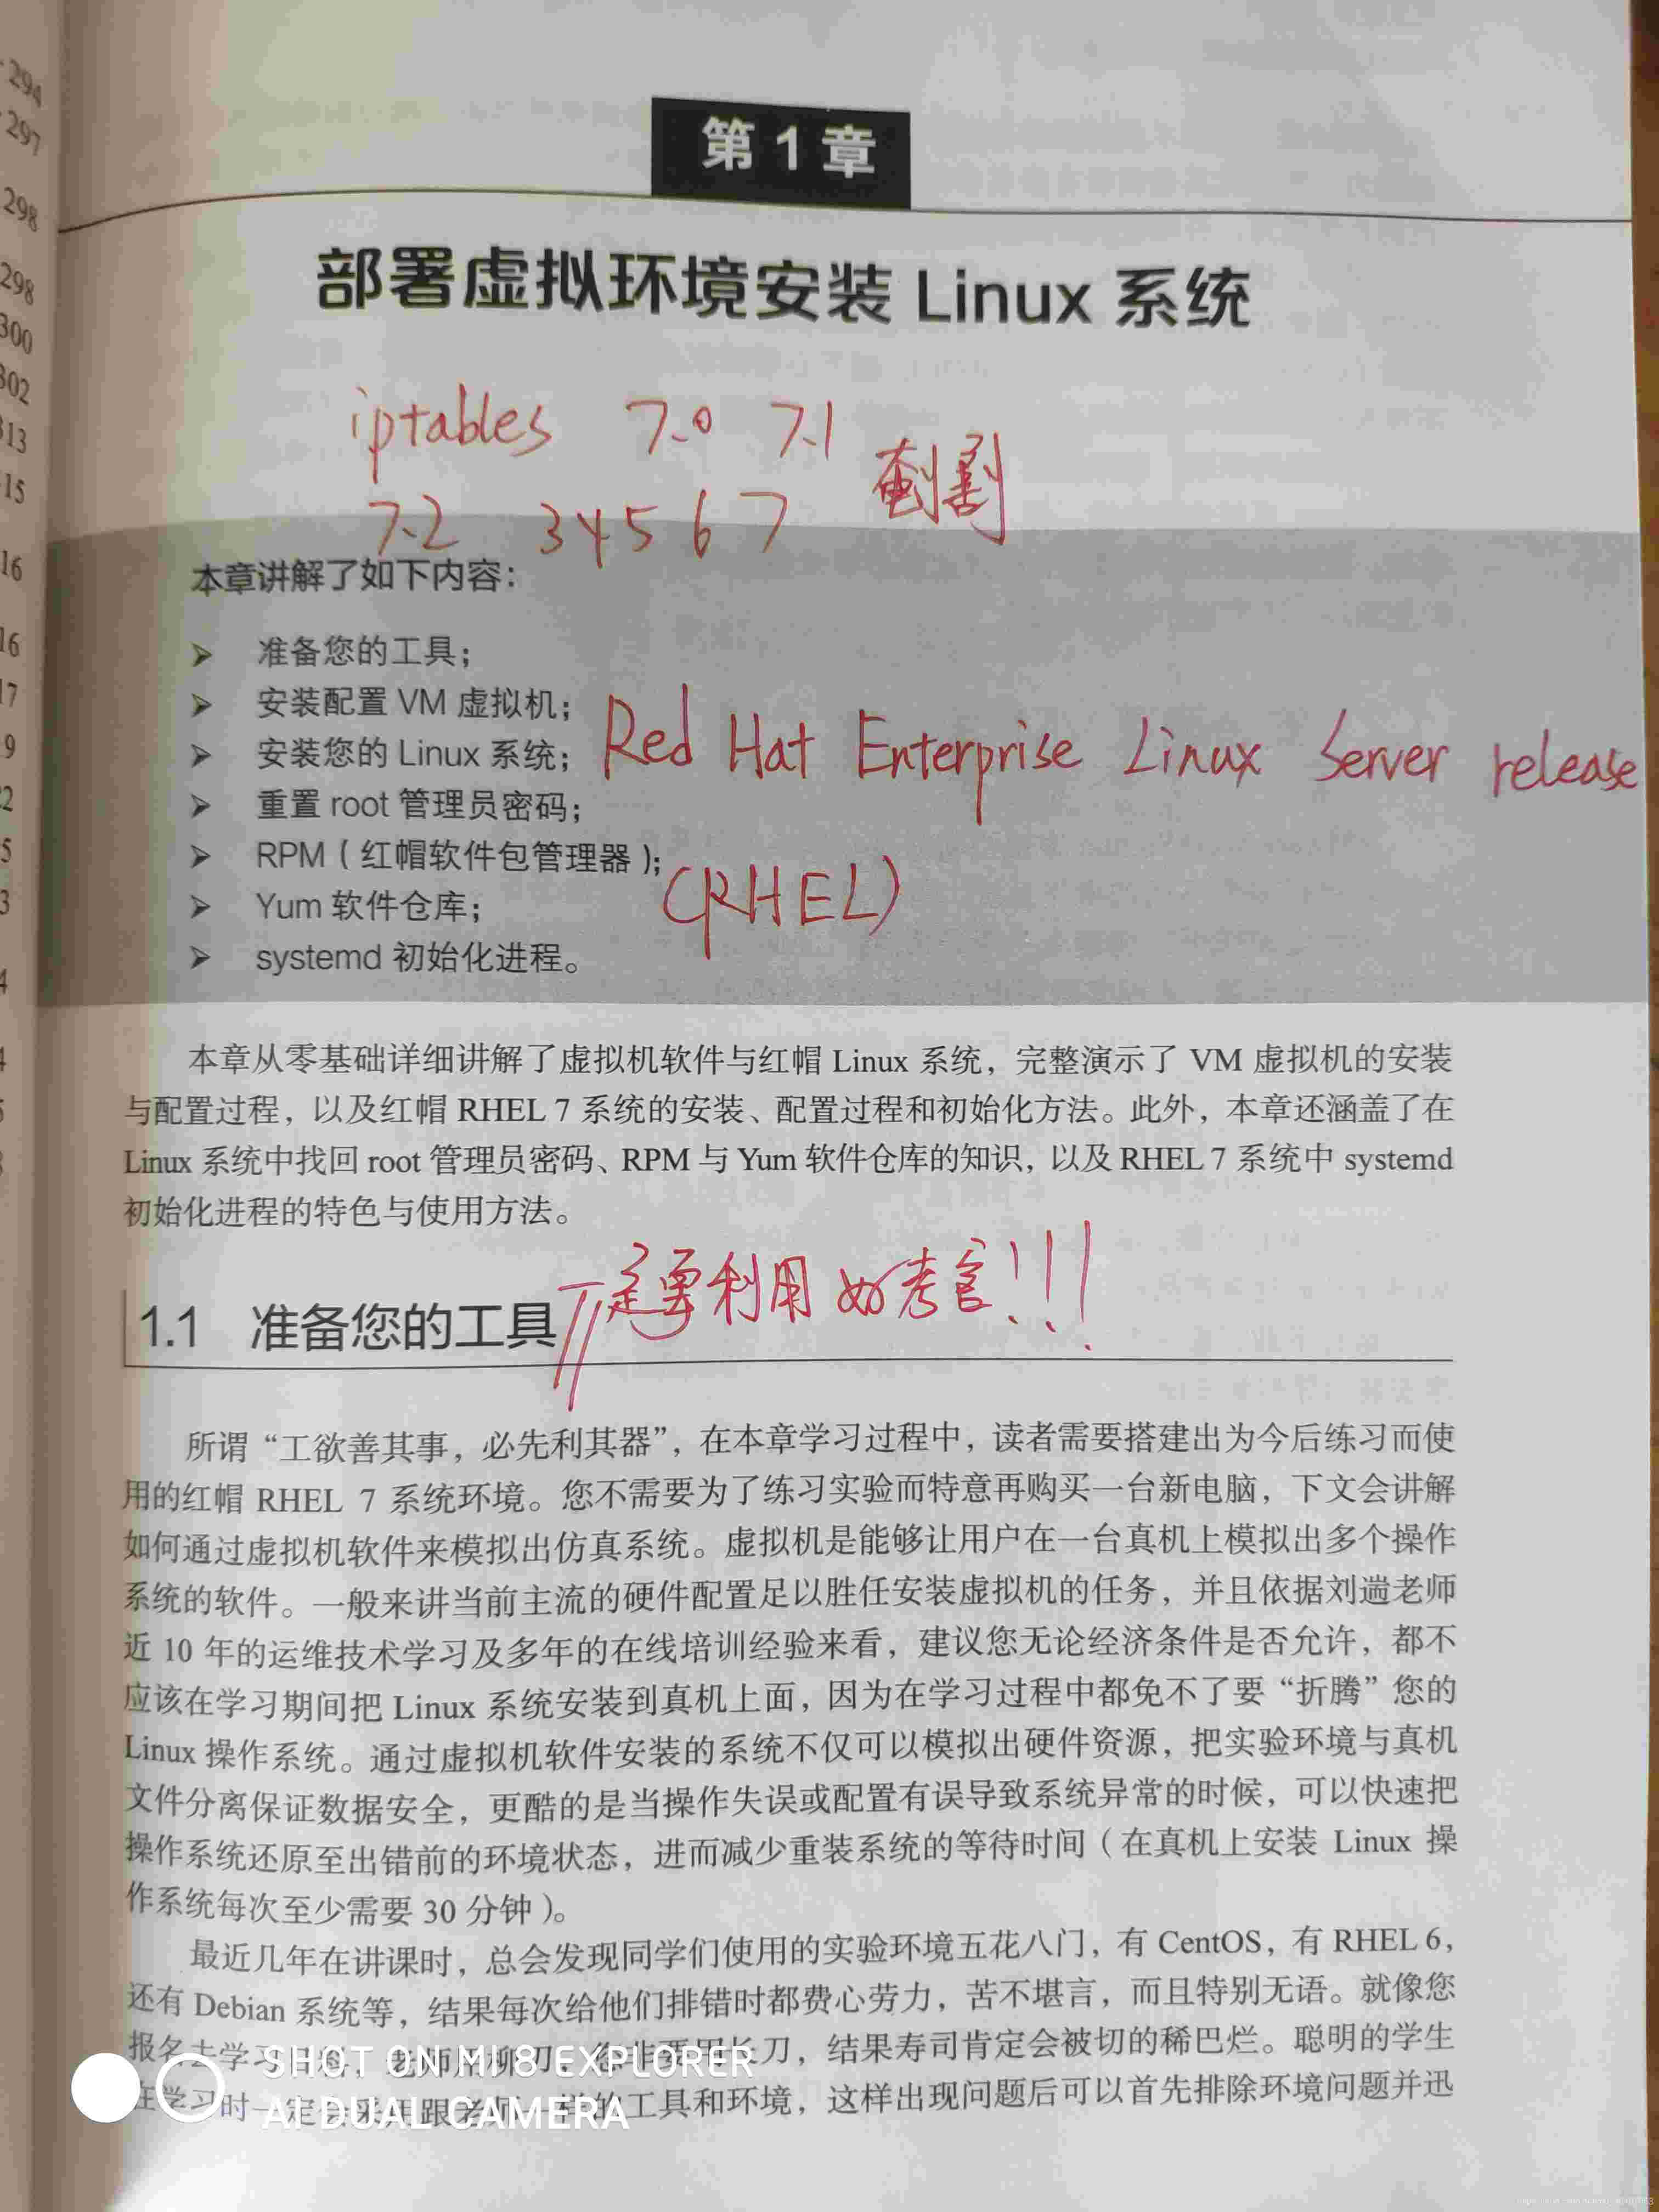 294
297
298
298
300
302
313
第 1 章
部署虚拟环境安装 Linux 系统
iptables 7.0 7.1
7.2 3 4 5 6 7
本章讲解了如下内容：
➢ 准备您的工具；
➢ 安装配置 VM 虚拟机；
➢ 安装您的 Linux 系统； Red Hat Enterprise Linux Server release
➢ 重置 root 管理员密码；
➢ RPM（红帽软件包管理器）；
(RHEL)
➢ Yum 软件仓库；
➢ systemd 初始化进程。
本章从零基础详细讲解了虚拟机软件与红帽 Linux 系统，完整演示了 VM 虚拟机的安装
与配置过程，以及红帽 RHEL 7 系统的安装、配置过程和初始化方法。此外，本章还涵盖了在
Linux 系统中找回 root 管理员密码、RPM 与 Yum 软件仓库的知识，以及 RHEL 7 系统中 systemd
初始化进程的特色与使用方法。
一定要利用好考官!!!
1.1 准备您的工具
所谓“工欲善其事，必先利其器”，在本章学习过程中，读者需要搭建出为今后练习而使
用的红帽 RHEL 7 系统环境。您不需要为了练习实验而特意再购买一台新电脑，下文会讲解
如何通过虚拟机软件来模拟出仿真系统。虚拟机是能够让用户在一台真机上模拟出多个操作
系统的软件。一般来讲当前主流的硬件配置足以胜任安装虚拟机的任务，并且依据刘遄老师
近 10 年的运维技术学习及多年的在线培训经验来看，建议您无论经济条件是否允许，都不
应该在学习期间把 Linux 系统安装到真机上面，因为在学习过程中都免不了要“折腾”您的
Linux 操作系统。通过虚拟机软件安装的系统不仅可以模拟出硬件资源，把实验环境与真机
文件分离保证数据安全，更酷的是当操作失误或配置有误导致系统异常的时候，可以快速把
操作系统还原至出错前的环境状态，进而减少重装系统的等待时间（在真机上安装 Linux 操
作系统每次至少需要 30 分钟）。
最近几年在讲课时，总会发现同学们使用的实验环境五花八门，有 CentOS，有 RHEL 6，
还有 Debian 系统等，结果每次给他们排错时都费心劳力，苦不堪言，而且特别无语。就像您
报名去学习 老师用柳刀，您非要用长刀，结果寿司肯定会被切的稀巴烂。聪明的学生
在学习时一定会采用跟老师一样的工具和环境，这样出现问题后可以首先排除环境问题并迅
SHOT ON MI 8 EXPLORER
AI DUAL CAMERA